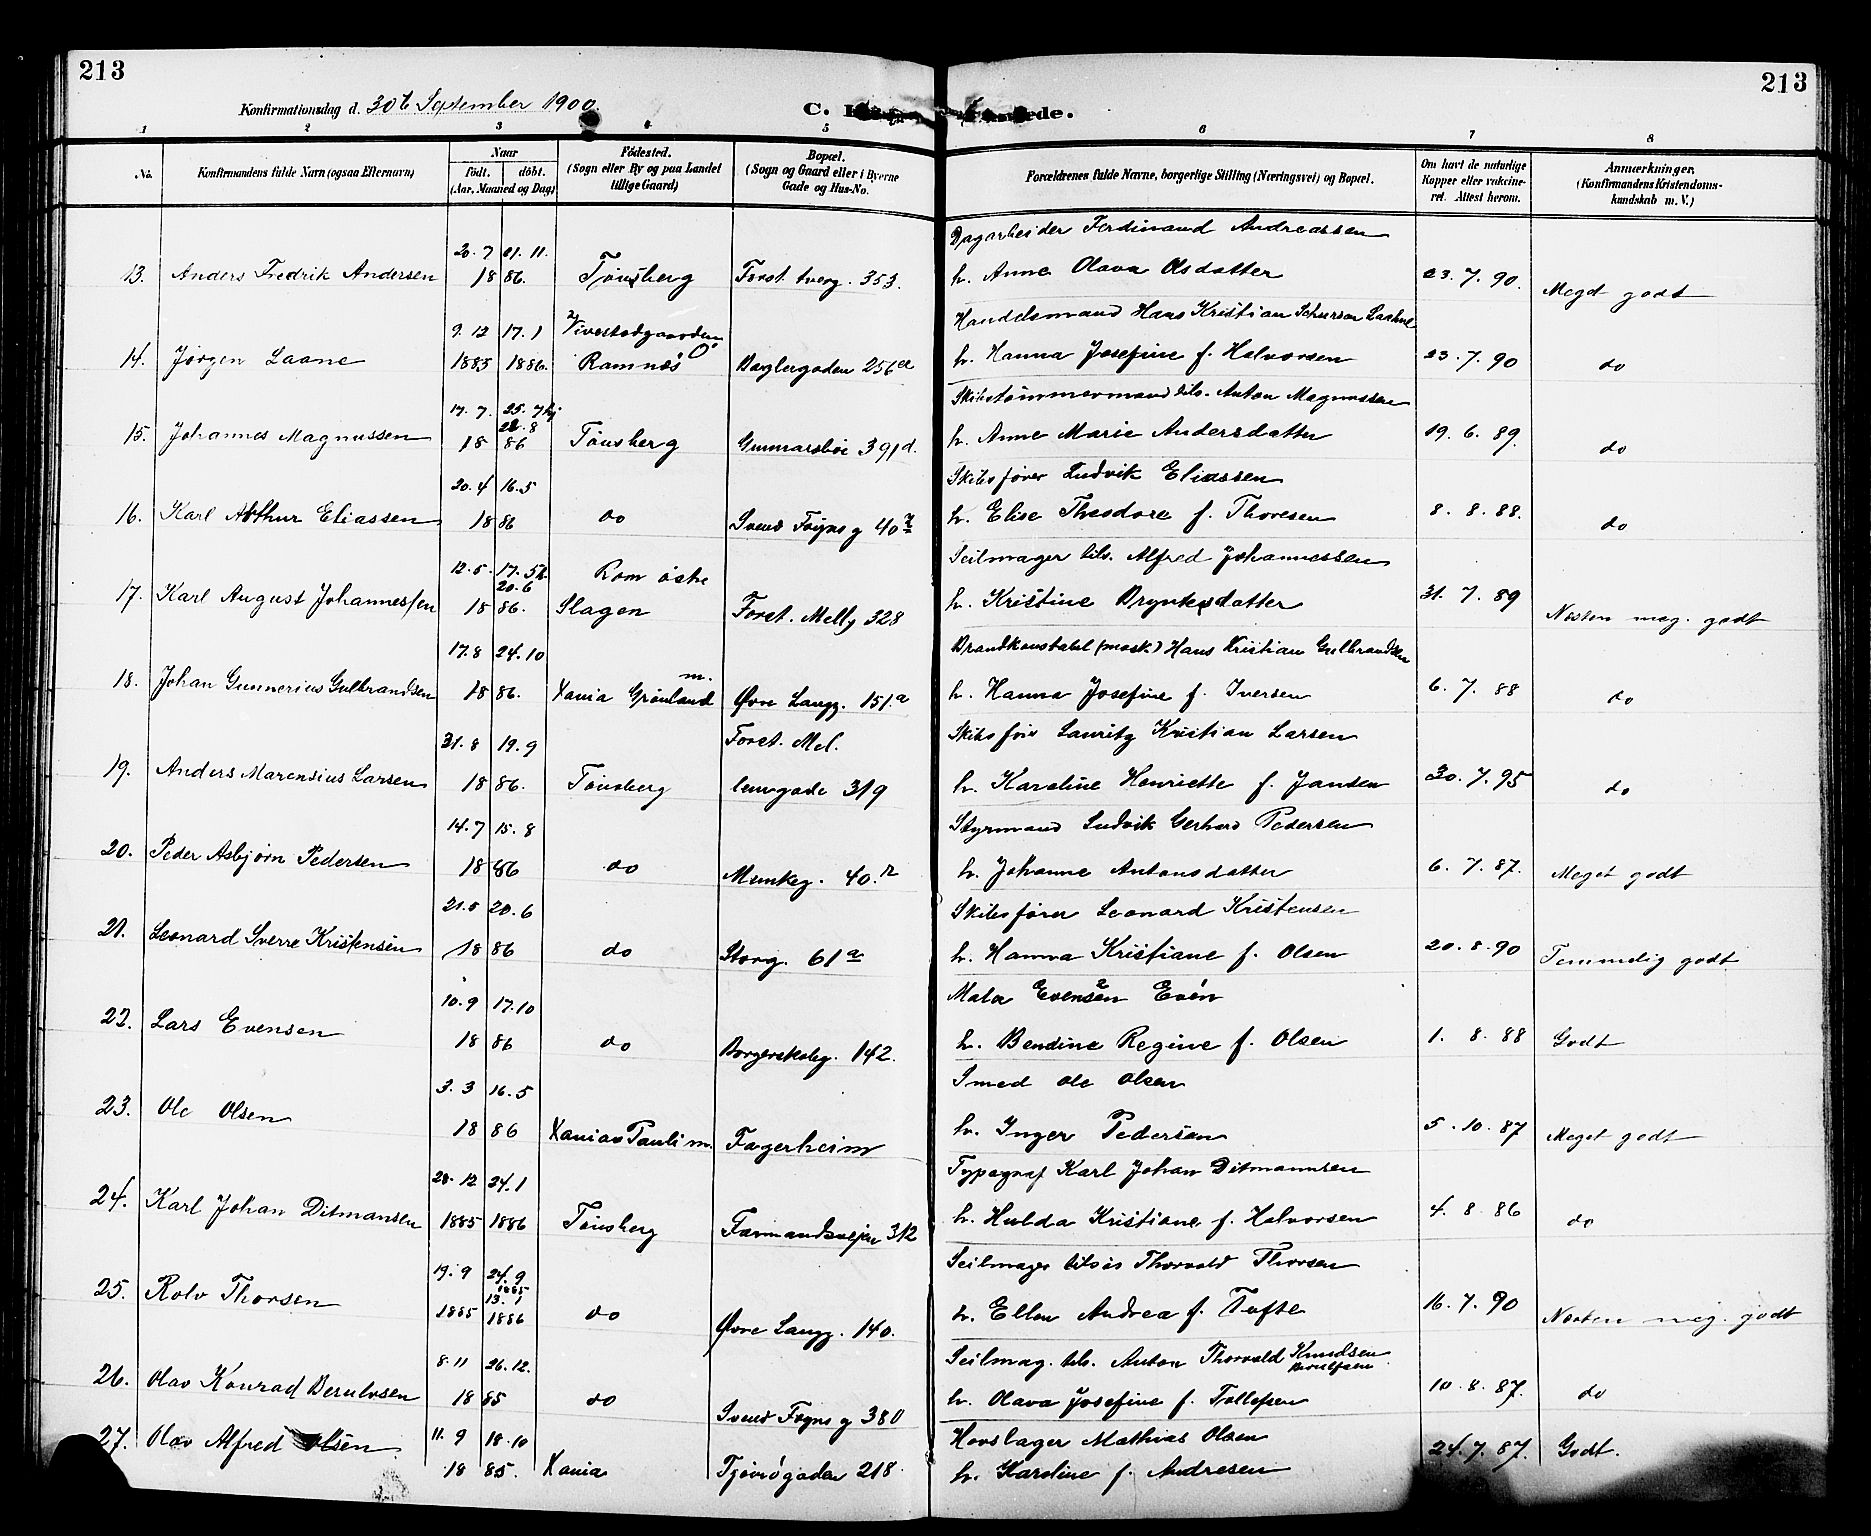 213
213
Konfirmationsdag d. 30te September 1900.
C.
1 2 3 4 5 6 7 8
No.
Konfirmandens fulde Navn (ogsaa Efternavn)
Naar
født. døbt.
(Aar, Maaned og Dag)
Fødested.
(Sogn eller By og paa Landet
tillige Gaard)
Bopæl.
(Sogn og Gaard eller i Byerne
Gade og Hus-No.
Forældrenes fulde Navne, borgerlige Stilling (Næringsvei) og Bopæl.
Om havt de naturlige
Kopper eller vakcine-
ret. Attest herom.
Anmærkninger.
(Konfirmandens Kristendoms-
kundskab m. V.)
20. 7 21. 11. Dagarbeider Ferdinand Andreassen
13. Anders Fredrik Andersen 18 86. Tønsberg Forst. tverg. 353. h. Anne Olava Olsdatter 23. 7. 90. Meget godt
9. 12 17. 1 Vivestadgaarden Handelsmand Hans Kristian Laane
14. Jørgen Laane 1885 1886. Ramnæs 256 h. Hanna Josefine f. Halvorsen 23. 7. 90 do
17. 7. 25. 7 hj Skibstømmermand Anton Magnussen
22. 8
15. Johannes Magnussen 18 86 Tønsberg Gunnarsbøe 391 d. h. Anne Marie Andersdatter 19. 6. 89. do
20. 4 16. 5 Skibsfører Ludvik Eliassen
16. Karl Arthur Eliassen 18 86 do Svend Foyns g 40 h. Elise Theodora f. Thoresen 8. 8. 88. do
12. 5. 17. 5 h. Rom østre Seilmager tils. Alfred Johannessen
20. 6
17. Karl August Johannessen 18 86. Slagen Forst. Mellg 328 h. Kristine Bryntesdatter 31. 7. 89 Næsten meg. godt
17. 8 24. 10 m. Brandkonstabel (mask) Hans Kristian Gulbrandsen
18. Johan Gunnerius Gulbrandsen 18 86. Xania Grønland Øvre Langg. 151. a h. Hanna Josefine f. Iversen 6. 7. 88 do
31. 8 19. 9 Forst. Mel. Skibsfør Lauritz Kristian Larsen
19. Anders Marensius Larsen 18 86. Tønsberg lemgade 319 h. Karoline Henriette f. Jansen 30. 7. 95 do
14. 7 15. 8 Styrmand Ludvik Gerhard Pedersen
20. Peder Asbjørn Pedersen 18 86 do Munkeg. 40. h. Johanne Antonsdatter 6. 7. 87. Meget godt
21. 5 20. 6 Skibsfører Leonard Kristensen
21. Leonard Sverre Kristensen 18 86 do Storg. 61 a h. Hanna Kristiane f. Olsen 20. 8. 90 Temmelig godt
10. 9 17. 10 Maler Evensen Even
22. Lars Evensen 18 86 do Borgerskoleg. 142. h. Bendine Regine f. Olsen 1. 8. 88 Godt
3. 3 16. 5 Smed Ole Olsen
23. Ole Olsen 18 86 Xania Pauli m. Fagerheim h. Inger Pedersen 5. 10. 87 Meget godt
20. 12 24. 1 Typograf Karl Johan Ditmannsen
24. Karl Johan Ditmansen 1885 1886 Tønsberg Farmandsvejen 312 h. Hulda Kristiane f. Halvorsen 4. 8. 86 do
19. 9 24. 9 Seilmager Thorvald Thorsen
1885
13. 1
25. Rolv Thorsen 1885 1886 do Øvre Langg. 140. h. Ellen Andrea f. Tufte 16. 7. 90 Næsten meg. godt
8. 11 26. 12. Seilmag. tils. Anton Thorvald Knudsen
Berulfsen
26. Olav Konrad Berulvsen 18 85 do Svend Foyns g 380 h. Olava Josefine f. Tollefsen 10. 8. 87. do
11. 9 18. 10 Hovslager Mathias Olsen
27. Olav Alfred Olsen 18 85. Xania Tjømøgaden 218. h. Karoline f. Andresen 24. 7. 87. Godt.